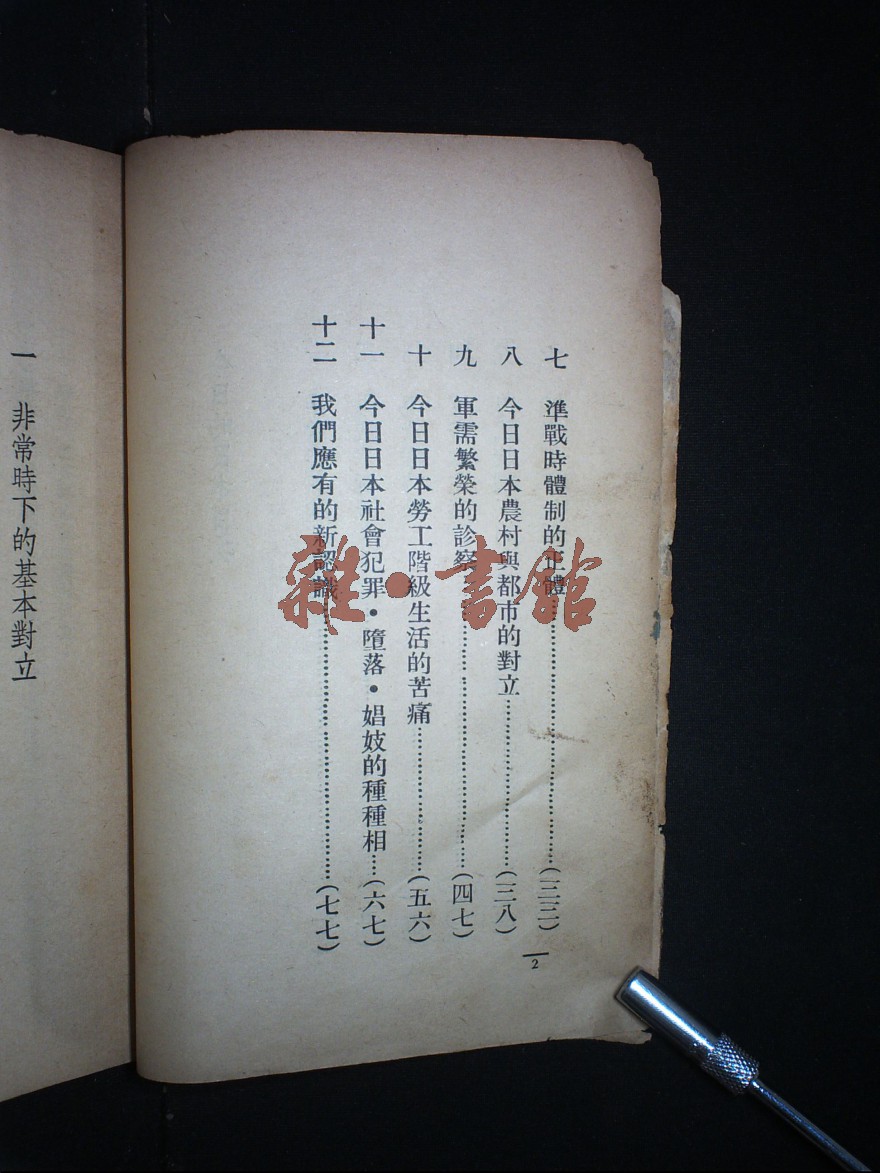 七 準戰時體制的正體……………………(三三)
八 今日日本農村與都市的對立……………………(三八)
九 軍需繁榮的診察……………………(四七)
十 今日日本勞工階級生活的苦痛……………………(五六)
十一 今日日本社會犯罪·墮落·娼妓的種種相……(六七)
十二 我們應有的新認識……………………(七七)
2
一 非常時下的基本對立
雜·書館